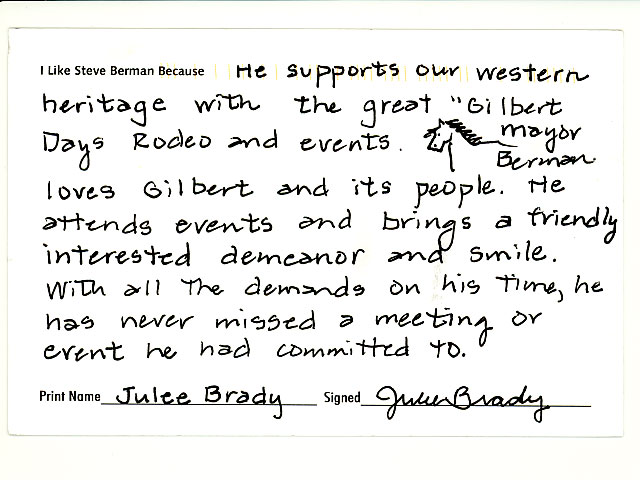 I Like Steve Berman Because He supports our western
heritage with the great "Gilbert
Days Rodeo and events. mayor
Berman
loves Gilbert and its people. He
attends events and brings a friendly
interested demeanor and smile.
With all The demands on his Time, he
has never missed a meeting or
event he had committed to.
Print Name Julee Brady Signed Julee Brady